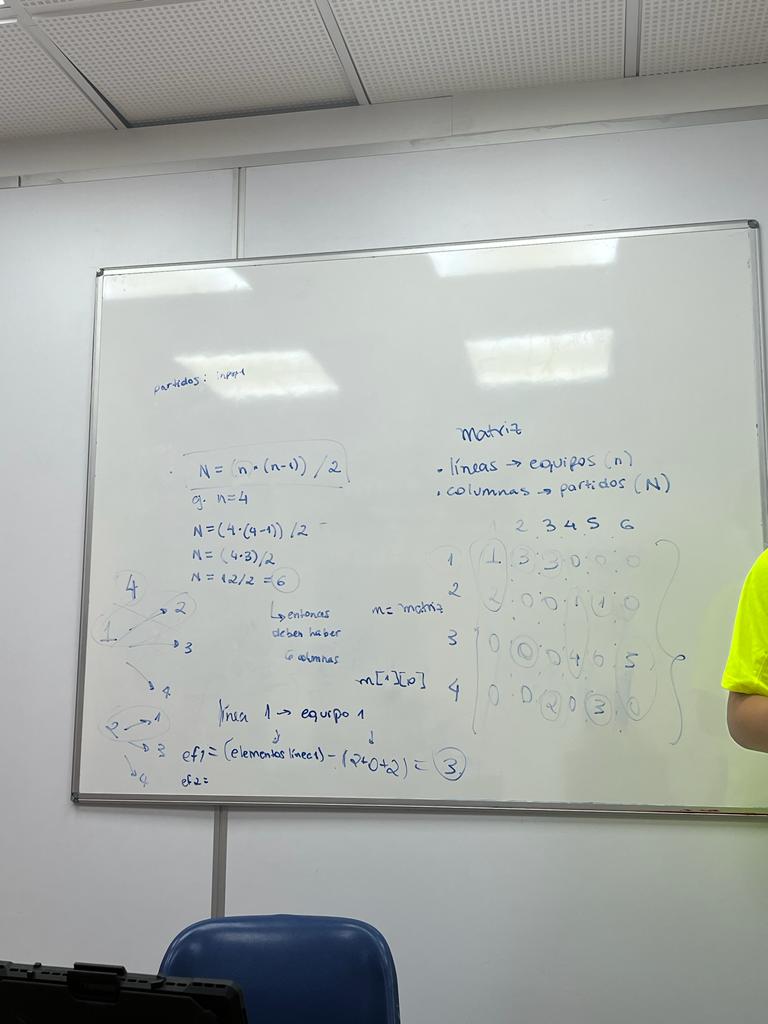 partidos: input
N = (n * (n-1)) / 2
g. n=4
N = (4·(4-1)) / 2
N = (4·3)/2
N = 12/2 = 6
↳ entonces
deben haber
6 columnas
4
1 → 2
→ 3
→ 4
2 → 1
→ 3
→ 4
línea 1 → equipo 1
ef1 = (elementos línea 1) - (2+0+2) = 3
ef2 =
Matriz
· líneas → equipos (n)
· columnas → partidos (N)
2 3 4 5 6
1 1 3 3 0 0 0
2 2 0 0 1 1 0
m = matriz
3 0 0 0 4 0 5
m[1][0]
4 0 0 2 0 3 0